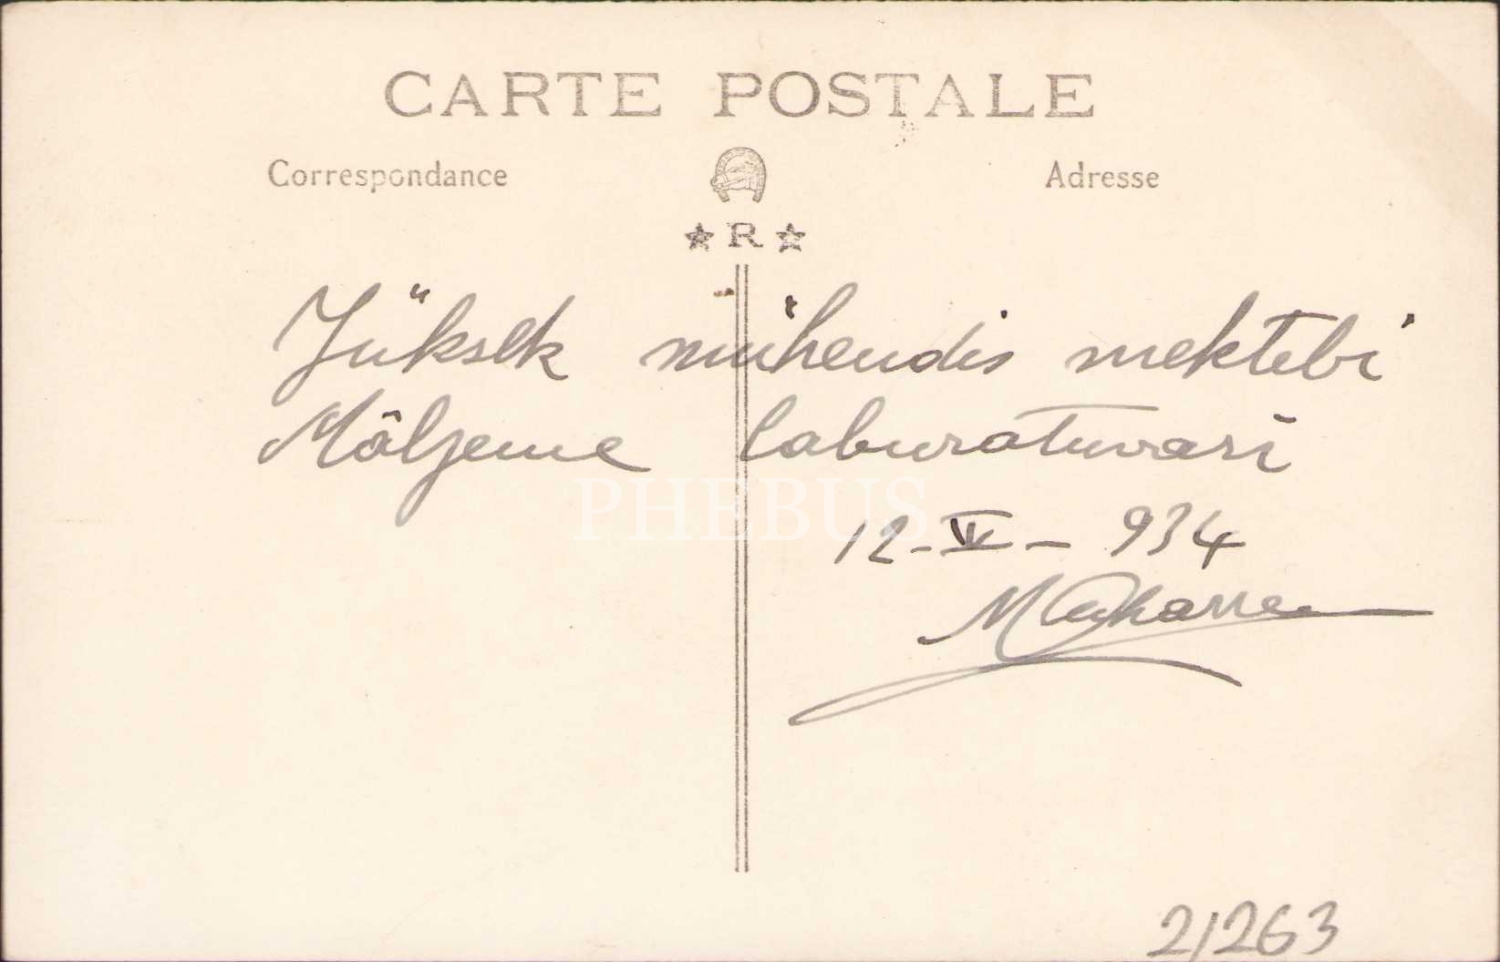 CARTE POSTALE
Correspondance
Adresse
★ R ★
Yüksek mühendis mektebi
Mâlzeme laburatuvarı
12-V-934
PHEBUS
2/263